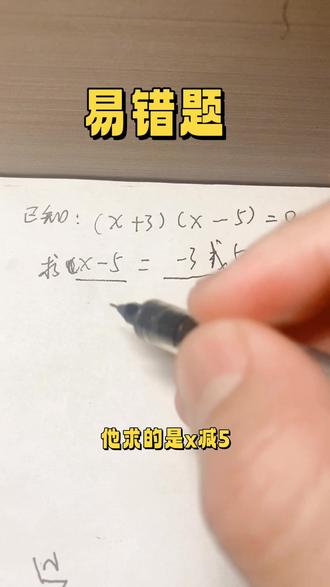 易错题
已知：(x+3)(x-5)=0
求x-5=-3或5
他求的是x减5
√2